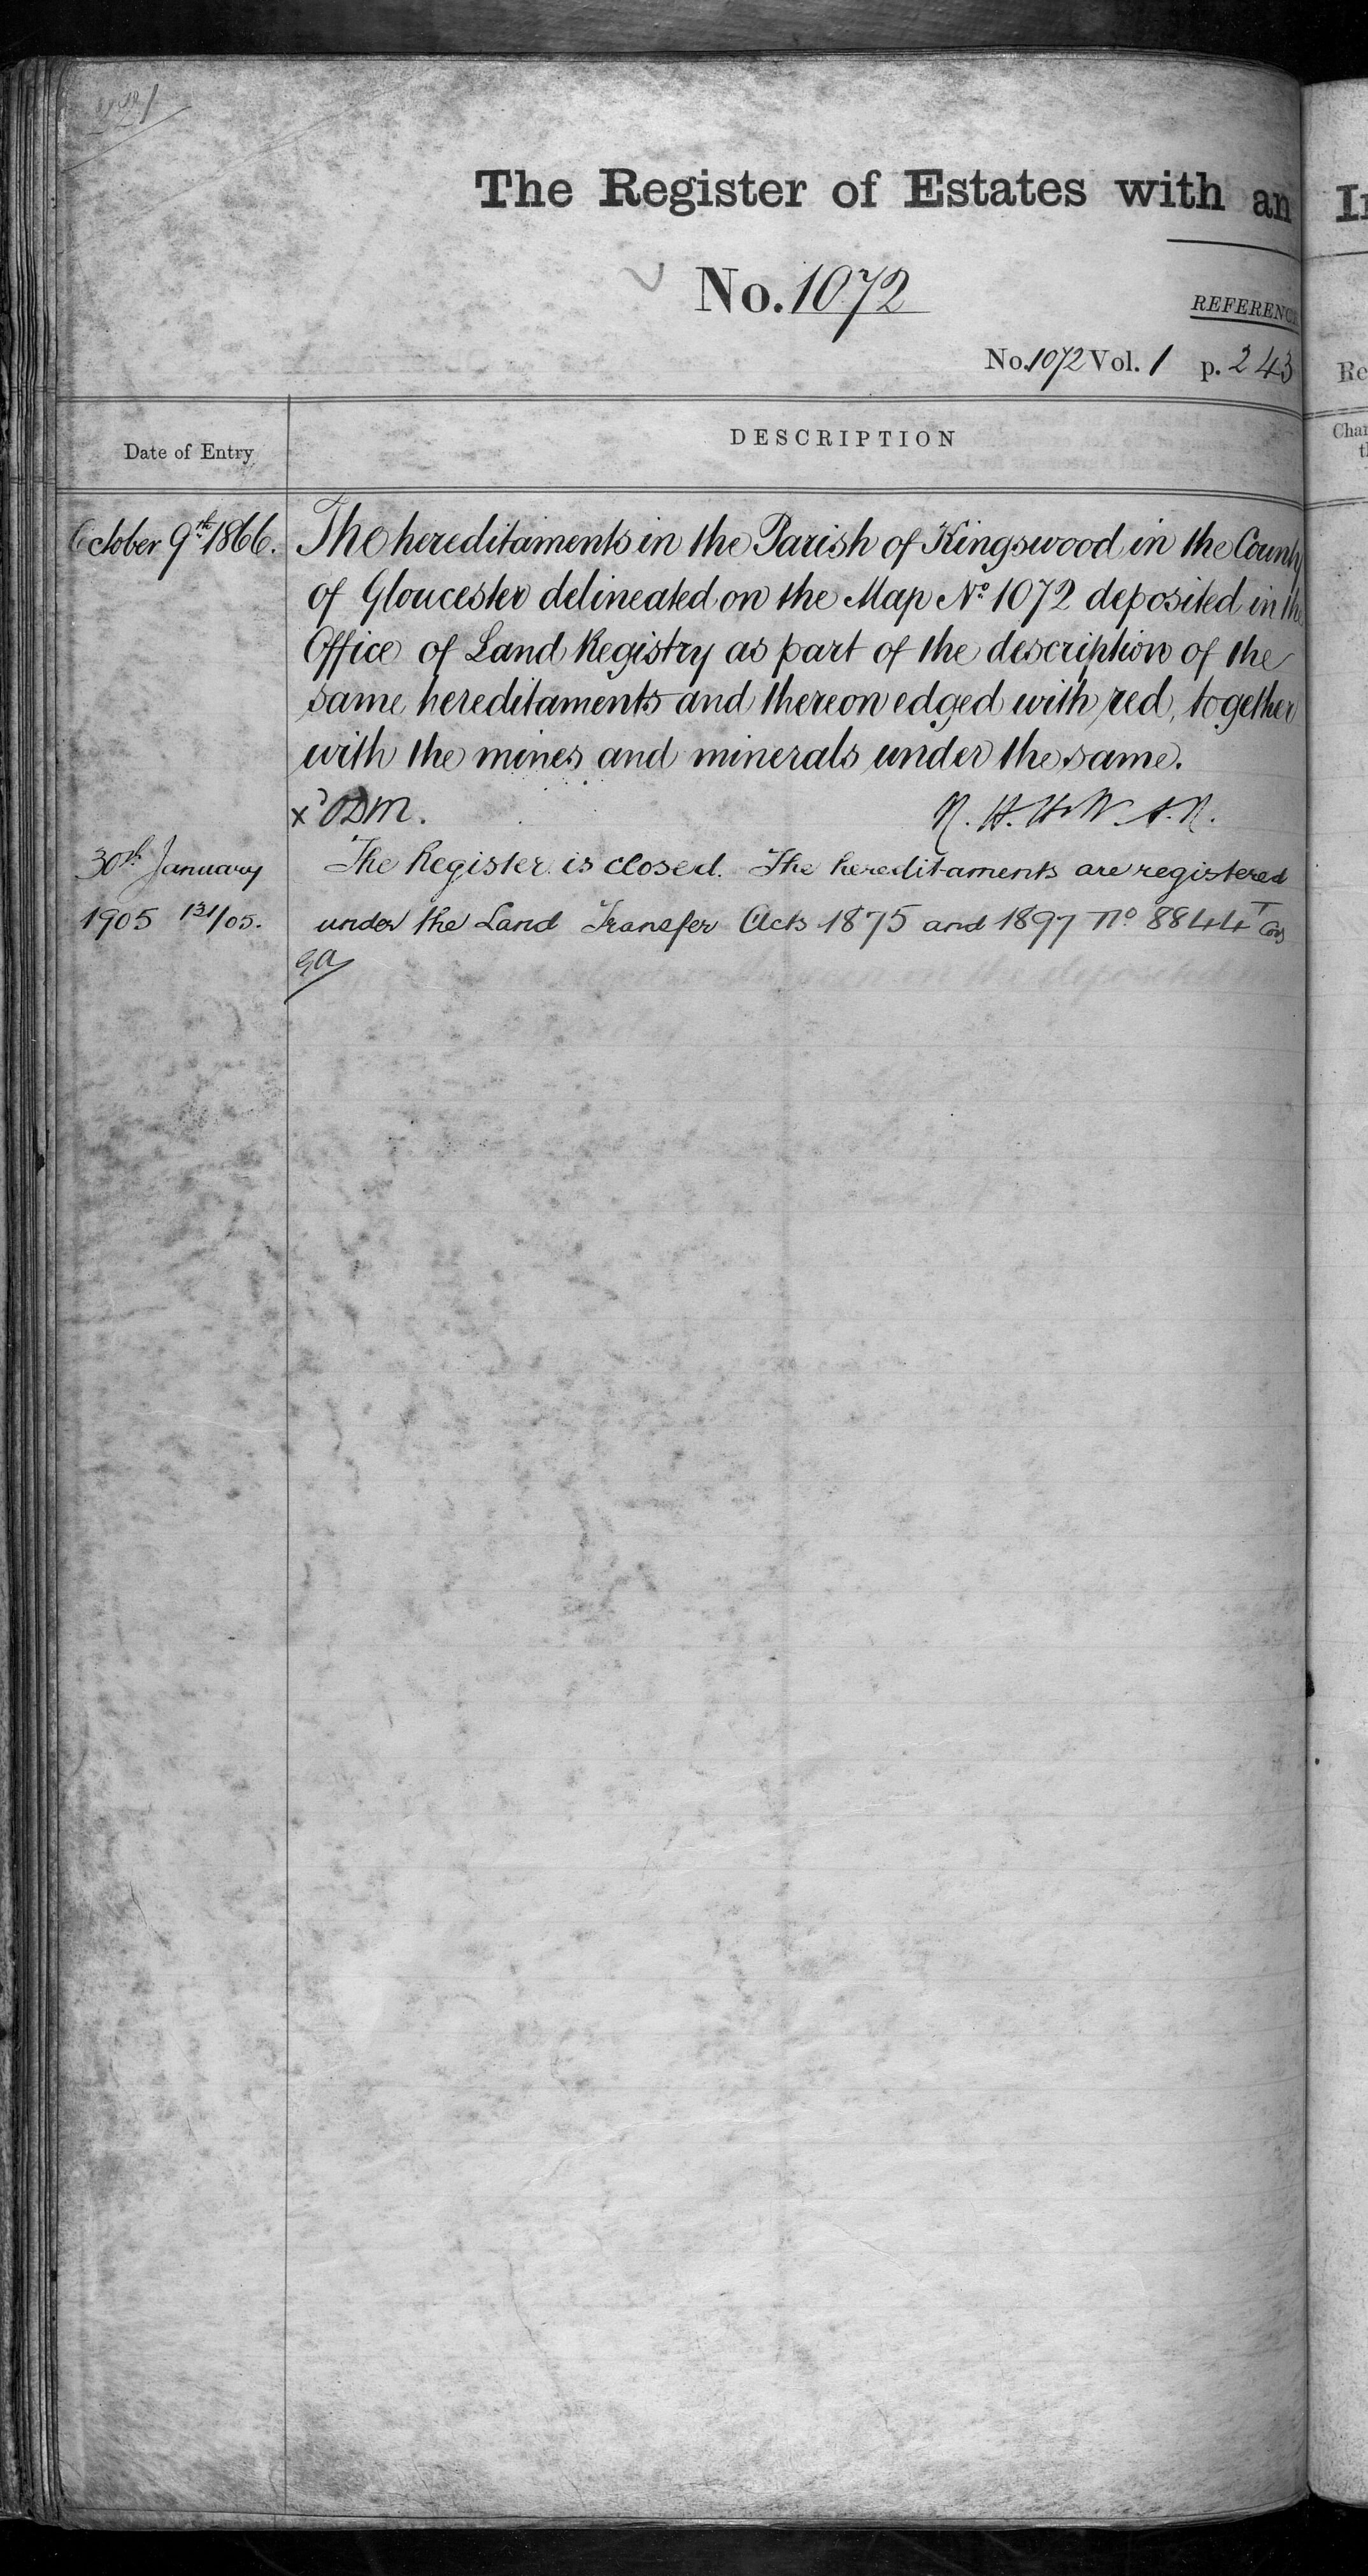 The Register of Estates with an
No. 1072
REFERENC
No. 1072 Vol. 1 p. 243
Date of Entry
DESCRIPTION
October 9th 1866.
The hereditaments in the Parish of Kingswood in the County
of Gloucester delineated on the Map No 1072 deposited in the
Office of Land Registry as part of the description of the
same hereditaments and thereon edged with red, together
with the mines and minerals under the same.
30th January
1905 131/05.
The Register is closed. The hereditaments are registered
under the Land Transfer Acts 1875 and 1897 No 8844